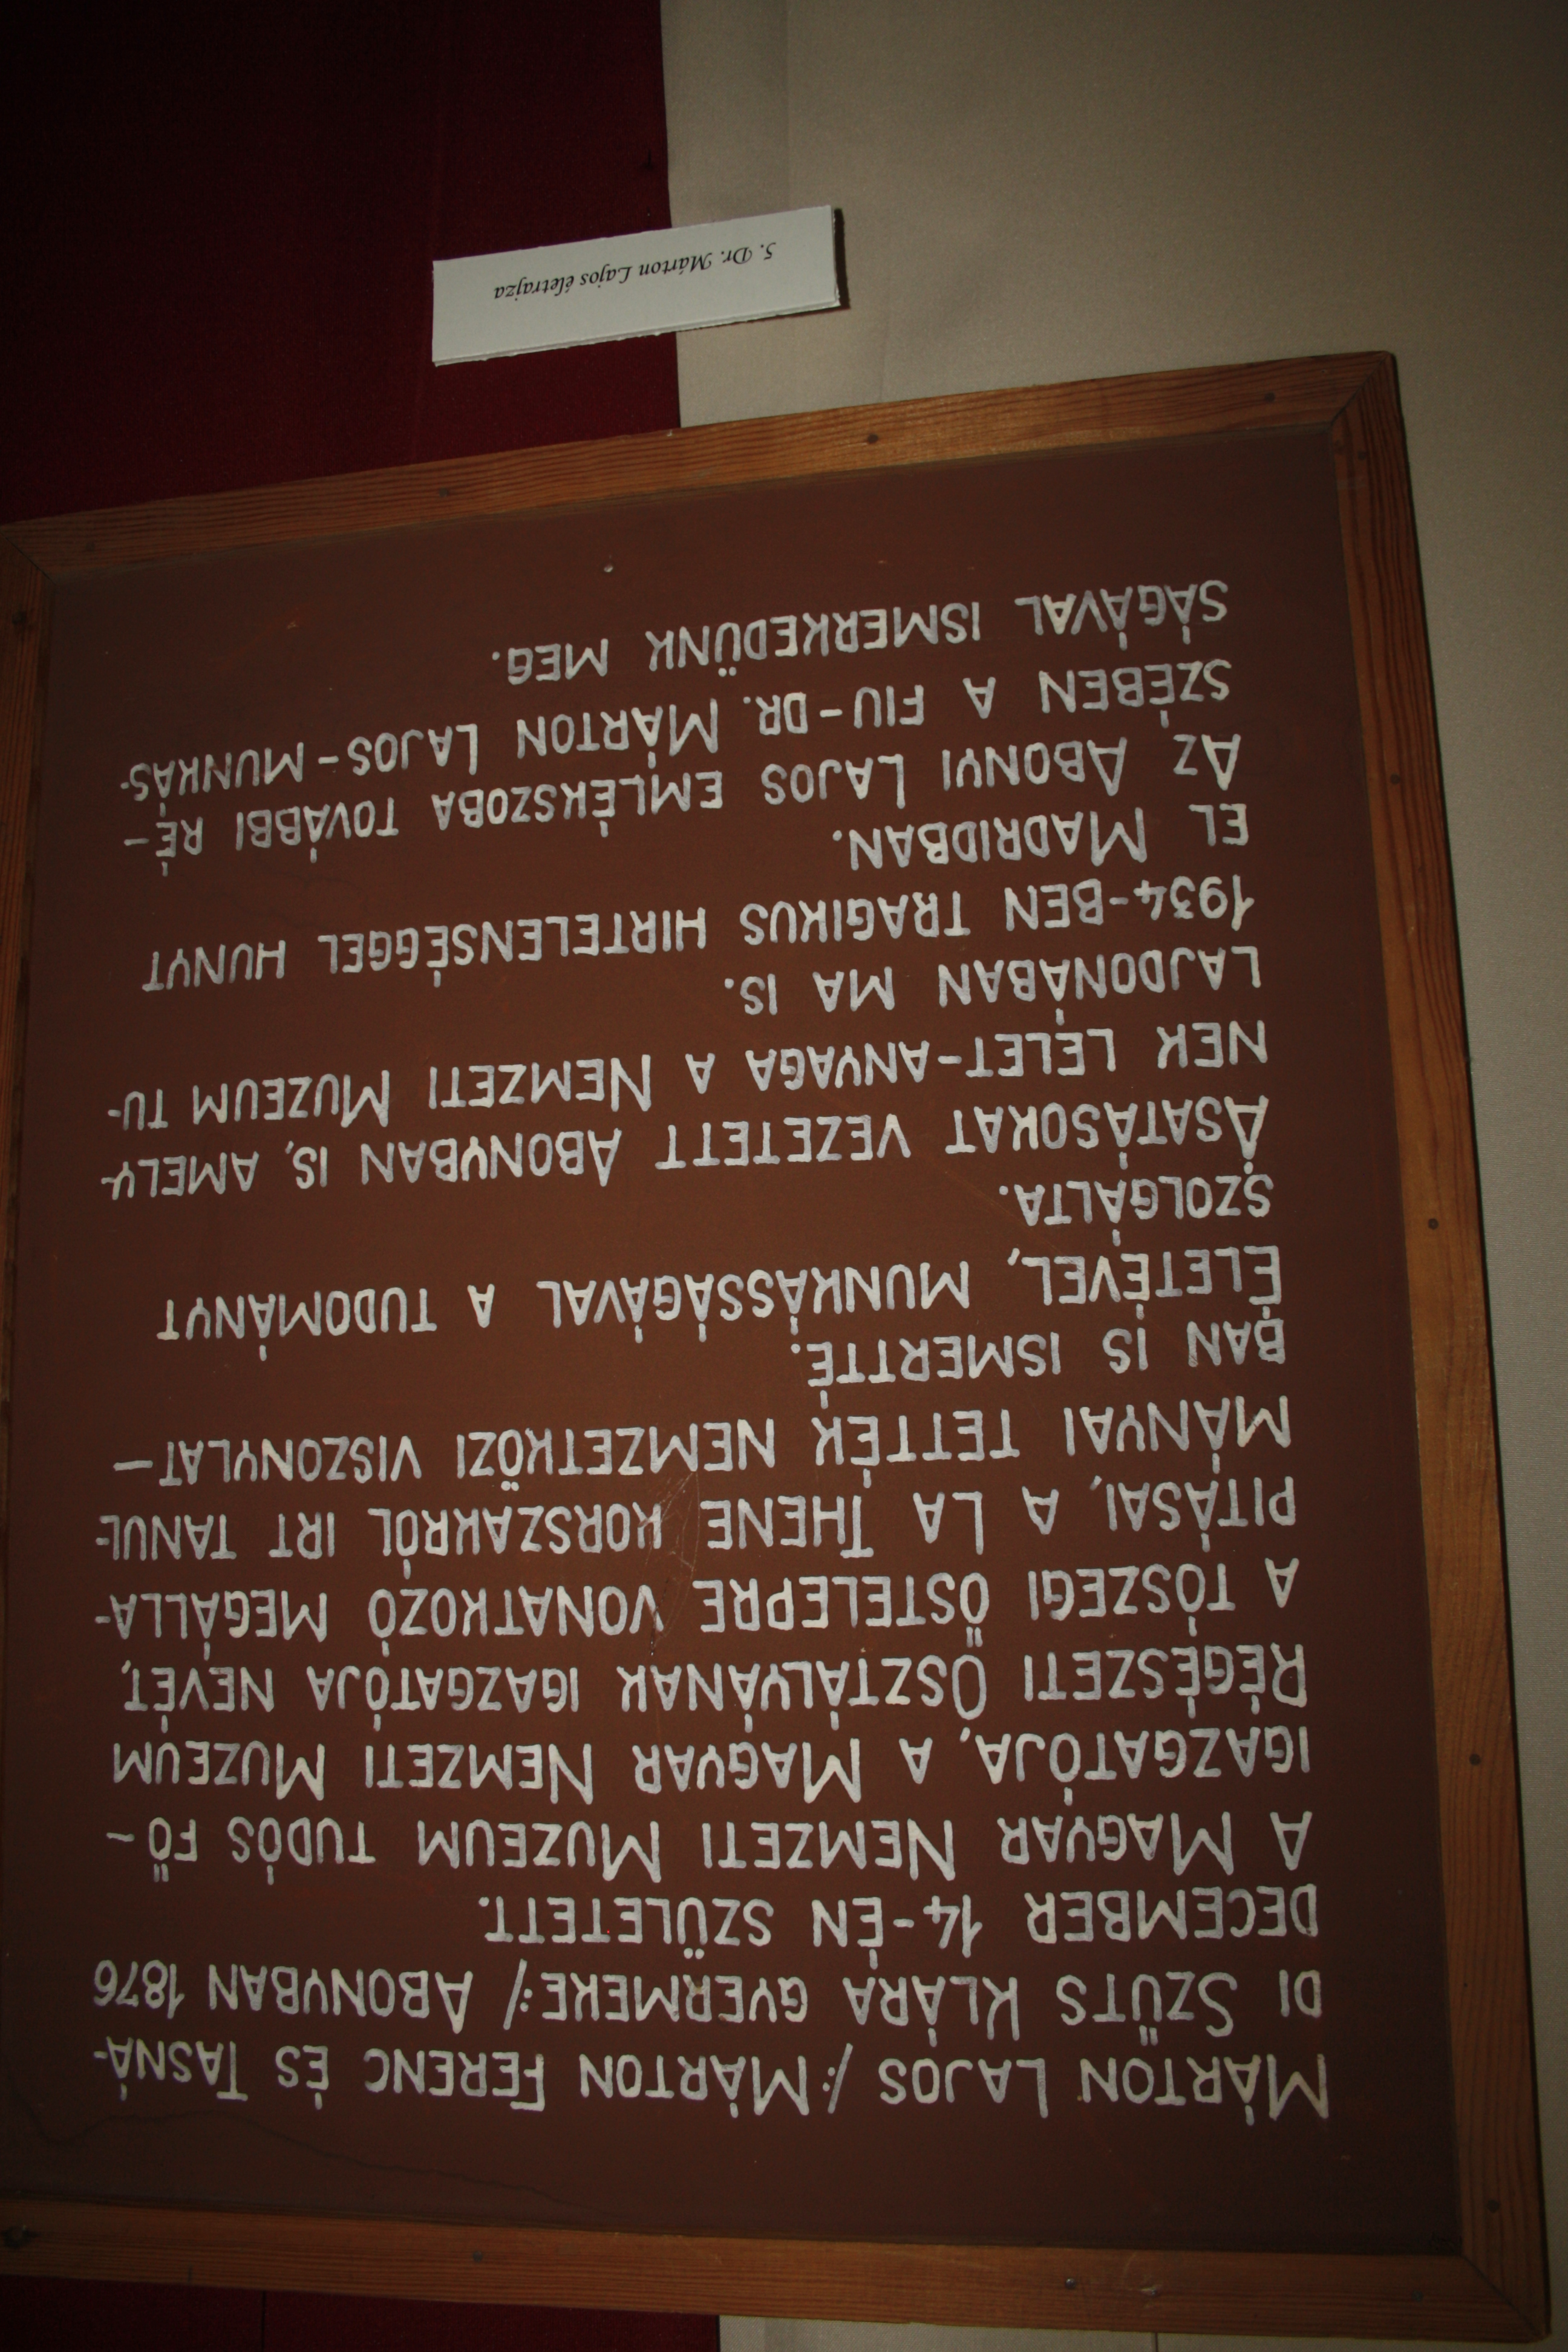 MÁRTON LAJOS /:MÁRTON FERENC ÉS TASNÁ-
DI SZŰTS KLÁRA GYERMEKE:/ ABONYBAN 1876
DECEMBER 14-ÉN SZÜLETETT.
A MAGYAR NEMZETI MUZEUM TUDÓS FŐ-
IGAZGATÓJA, A MAGYAR NEMZETI MUZEUM
RÉGÉSZETI OSZTÁLYÁNAK IGAZGATÓJA NEVÉT,
A TÓSZEGI ŐSTELEPRE VONATKOZÓ MEGÁLLA-
PITÁSAI, A LA THENE KORSZAKRÓL IRT TANUL-
MÁNYAI TETTÉK NEMZETKÖZI VISZONYLAT-
BAN IS ISMERTTÉ.
ÉLETÉVEL, MUNKÁSSÁGÁVAL A TUDOMÁNYT
SZOLGÁLTA.
ÁSATÁSOKAT VEZETETT ABONYBAN IS, AMELY-
NEK LELET-ANYAGA A NEMZETI MUZEUM TU-
LAJDONÁBAN MA IS.
1934-BEN TRAGIKUS HIRTELENSÉGGEL HUNYT
EL MADRIDBAN.
AZ ABONYI LAJOS EMLÉKSZOBA TOVÁBBI RÉ-
SZÉBEN A FIU-DR. MÁRTON LAJOS-MUNKÁS-
SÁGÁVAL ISMERKEDÜNK MEG.
5. Dr. Márton Lajos életrajza